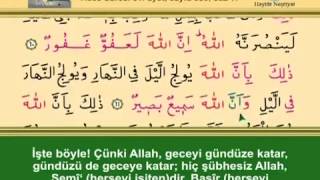 Hayrât Neşriyat
لَيَنْصُرَنَّهُ اللّٰهُ اِنَّ اللّٰهَ لَعَفُوٌّ غَفُورٌ ٦٠
ذٰلِكَ بِاَنَّ اللّٰهَ يُولِجُ الَّيْلَ فِي النَّهَارِ وَيُولِجُ النَّهَارَ
فِي الَّيْلِ وَاَنَّ اللّٰهَ سَمِيعٌ بَصِيرٌ ٦١
İşte böyle! Çünki Allah, geceyi gündüze katar,
gündüzü de geceye katar; hiç şübhesiz Allah,
Semî' (herşeyi işiten)dir, Basîr (herşeyi